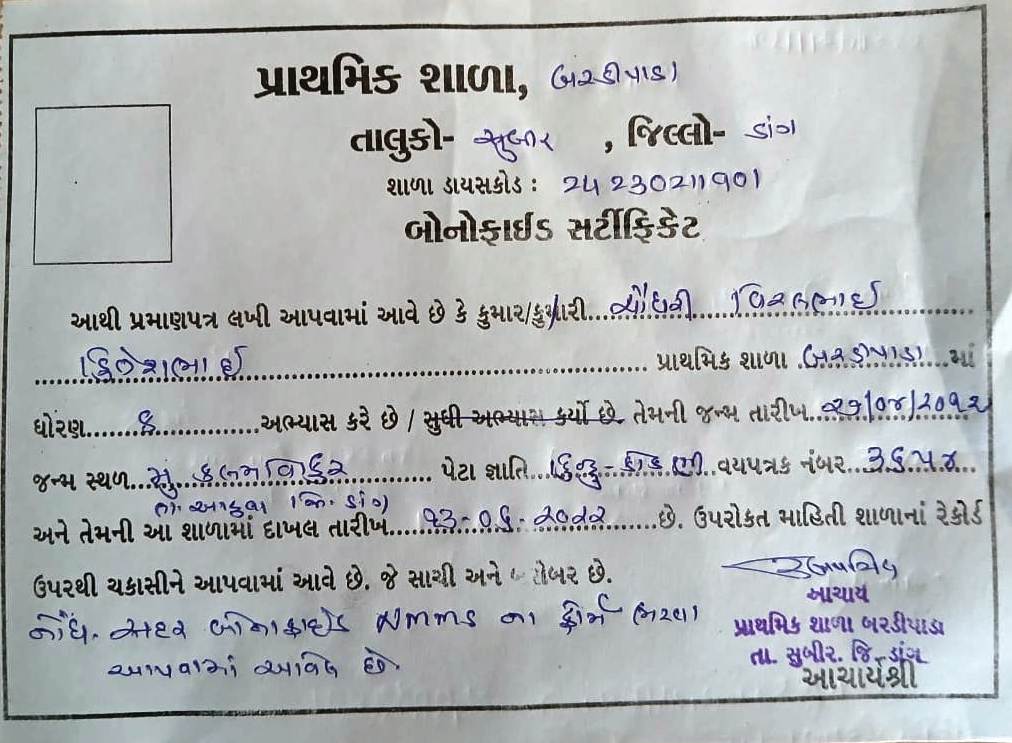 પ્રાથમિક શાળા, બરડીપાડા
તાલુકો- સુબીર , જિલ્લો- ડાંગ
શાળા ડાયસકોડ : 24230211901
બોનોફાઈડ સર્ટીફિકેટ
આથી પ્રમાણપત્ર લખી આપવામાં આવે છે કે કુમાર/કુમારી...ચૌધરી વિરલભાઈ
હિતેશભાઈ પ્રાથમિક શાળા બરડીપાડા...માં
ધોરણ......૮............અભ્યાસ કરે છે / સુધી અભ્યાસ કર્યો છે. તેમની જન્મ તારીખ..૨૭/૦૪/૨૦૧૨
જન્મ સ્થળ...મું. કલમવિહર પેટા જ્ઞાતિ..હિન્દુ-કોકણી..વયપત્રક નંબર..૩૬૫૪
તા. આહવા જિ. ડાંગ
અને તેમની આ શાળામાં દાખલ તારીખ...૧૩-૦૬-૨૦૨૨......છે. ઉપરોકત માહિતી શાળાનાં રેકોર્ડ
ઉપરથી ચકાસીને આપવામાં આવે છે. જે સાચી અને બરોબર છે.
નોંધ- સદર બોનાફાઈડ NMMS ના ફોર્મ ભરવા
આપવામાં આવેલ છે.
આચાર્ય
પ્રાથમિક શાળા બરડીપાડા
તા. સુબીર. જિ-ડાંગ
આચાર્યશ્રી